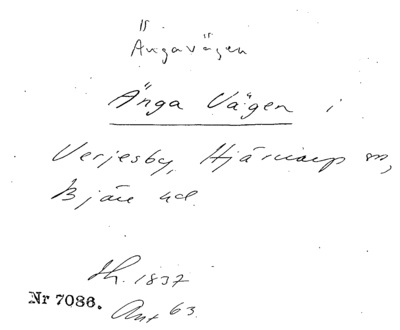 Ängavägen
Änga Vägen i
Verjesby, Hjärnarp sn,
Bjäre hd.
Sh. 1837
Nr 7086. Ant 63.